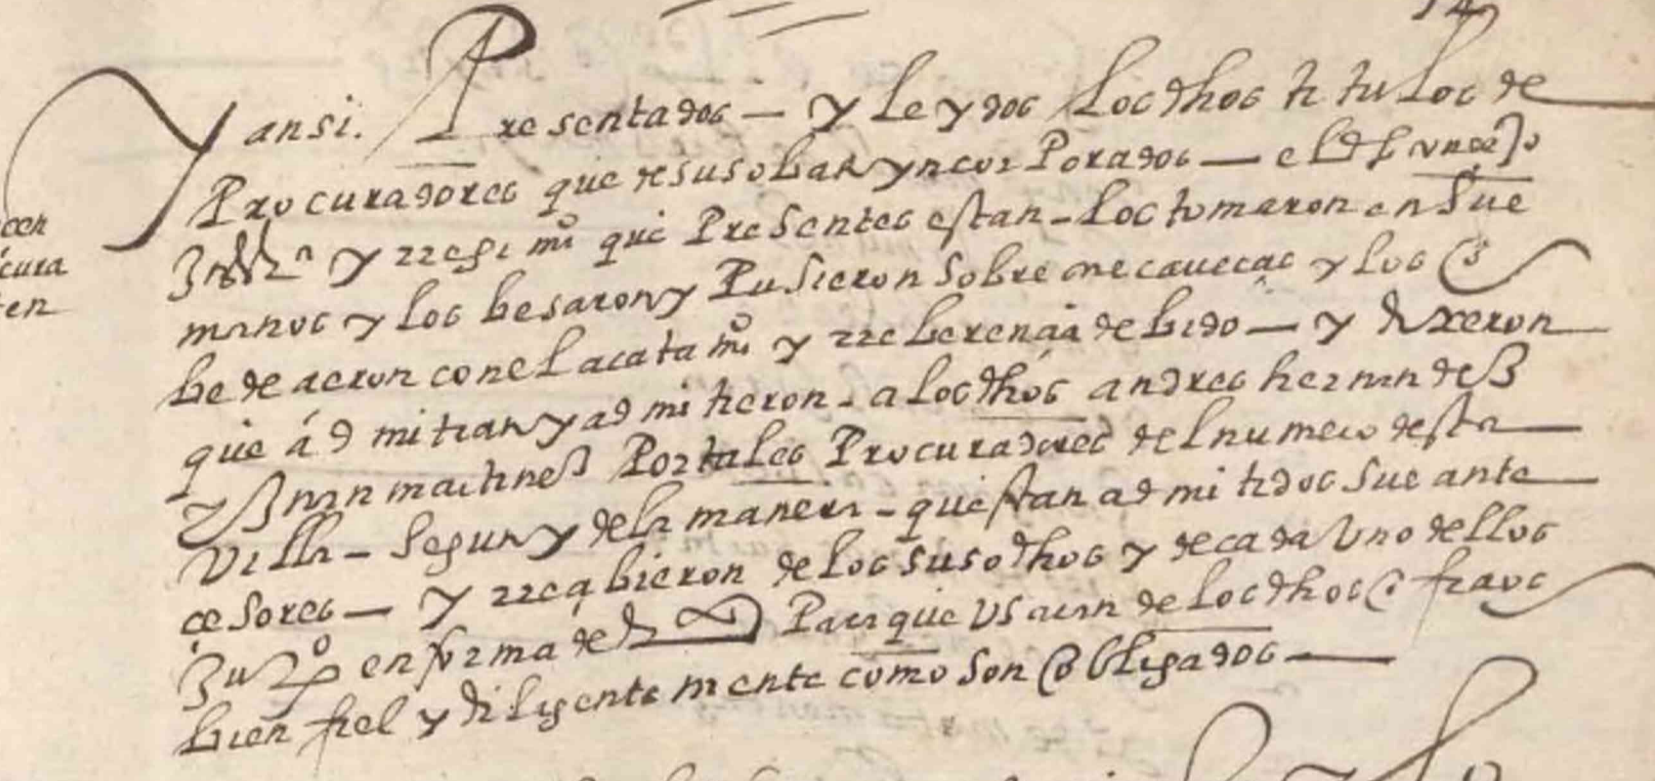 14
Y ansi. Presentados — y leydos los dhos titulos de
Procuradores que desuso ban yncorporados — e
y rregimio que Presentes estan — los tomaron en sus
manos y los besaron y Pusieron sobre sus cavecas y los
obedecieron con el acatamio y rreberencia debido — y dixeron
que admitian y admitieron — a los dhos andres hernandes
y Juan martines Portales Procuradores del numero desta
villa — segun y de la manera — questan admitidos sus ante
cesores — y rrecibieron de los susodhos y de cada uno dellos
Juro en forma de Para que usaran de los dhos
bien fiel y diligente mente como son obligados —